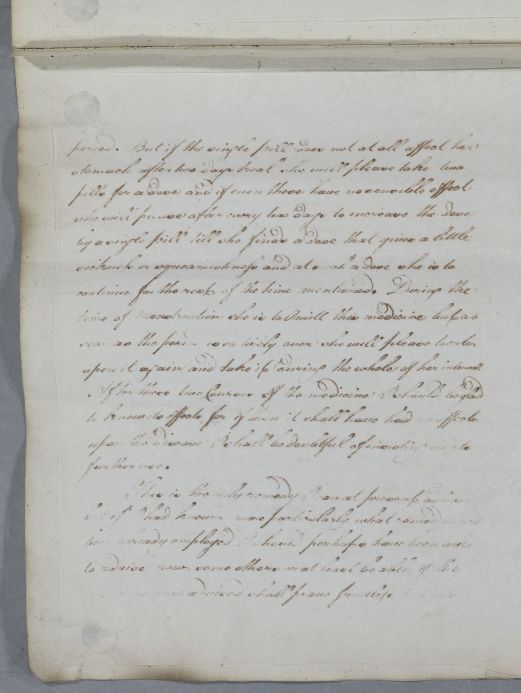 period. But if the single pill does not at all affect her
stomach after two days trial she will please take two
pills for a dose and if even these have no sensible effect
she will please after every two days to increase the dose
by a single pill till she finds a dose that gives a little
sickness or squeamishness and at such a dose she is to
continue for the rest of the time mentioned. During the
time of Menstruation she is to omit the medicine but as
soon as the period is entirely over she will please to enter
upon it again and take it during the whole of her interval
After these two Courses of the medicine I should be glad
to know its effects for if then it shall have had no effects
upon the disease I shall be doubtful of insisting on its
further use.
This is the only remedy I can at present advise
but if I had known more particularly what remedies
been already employed I should perhaps have been able
to advise now some others and will be able if the
advised shall prove fruitless